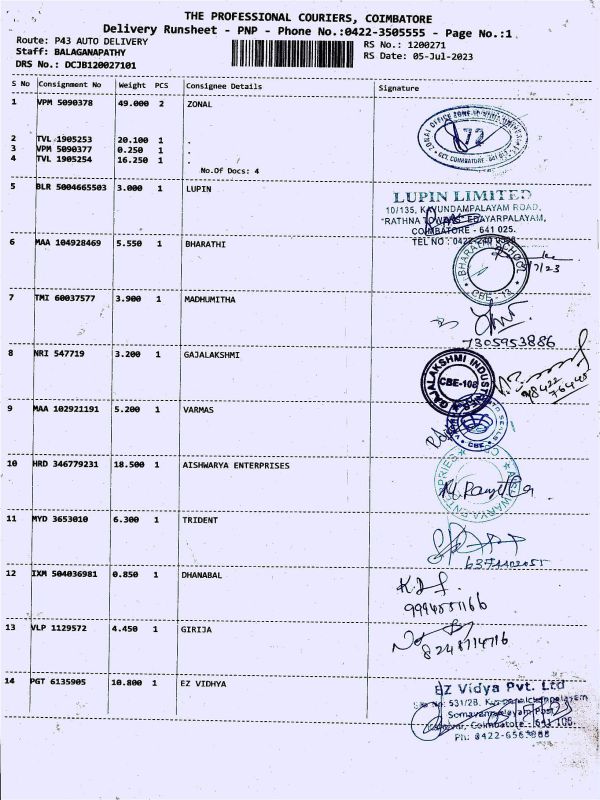 THE PROFESSIONAL COURIERS, COIMBATORE
Delivery Runsheet - PNP - Phone No.:0422-3505555 - Page No.:1
Route: P43 AUTO DELIVERY RS No.: 1200271
Staff: BALAGANAPATHY RS Date: 05-Jul-2023
DRS No.: DCJB120027101
S No Consignment No Weight PCS Consignee Details Signature
1 VPM 5090378 49.000 2 ZONAL
72
2 TVL 1905253 20.100 1 .
3 VPM 5090377 0.250 1 .
4 TVL 1905254 16.250 1 .
No.Of Docs: 4
5 BLR 5004665503 3.000 1 LUPIN
LUPIN LIMITED
10/135, KAVUNDAMPALAYAM ROAD,
"RATHNA TOWERS" EDAYARPALAYAM,
COIMBATORE - 641 025.
TEL NO : 0422-240
6 MAA 104928469 5.550 1 BHARATHI
BHARATHI SCHOOL
CBE-13
7/23
7 TMI 60037577 3.900 1 MADHUMITHA
7305953886
8 NRI 547719 3.200 1 GAJALAKSHMI
GAJALAKSHMI INDUSTRIES
CBE-108
9 MAA 102921191 5.200 1 VARMAS
CBE
10 HRD 346779231 18.500 1 AISHWARYA ENTERPRISES
AISHWARYA ENTERPRISES
11 MYD 3653010 6.300 1 TRIDENT
12 IXM 504036981 0.850 1 DHANABAL
13 VLP 1129572 4.450 1 GIRIJA
14 PGT 6135905 10.800 1 EZ VIDHYA
EZ Vidya Pvt. Ltd
No: 531/2B,
Somavampalayam Post,
Coimbatore - 641 108.
Ph: 0422-6563888